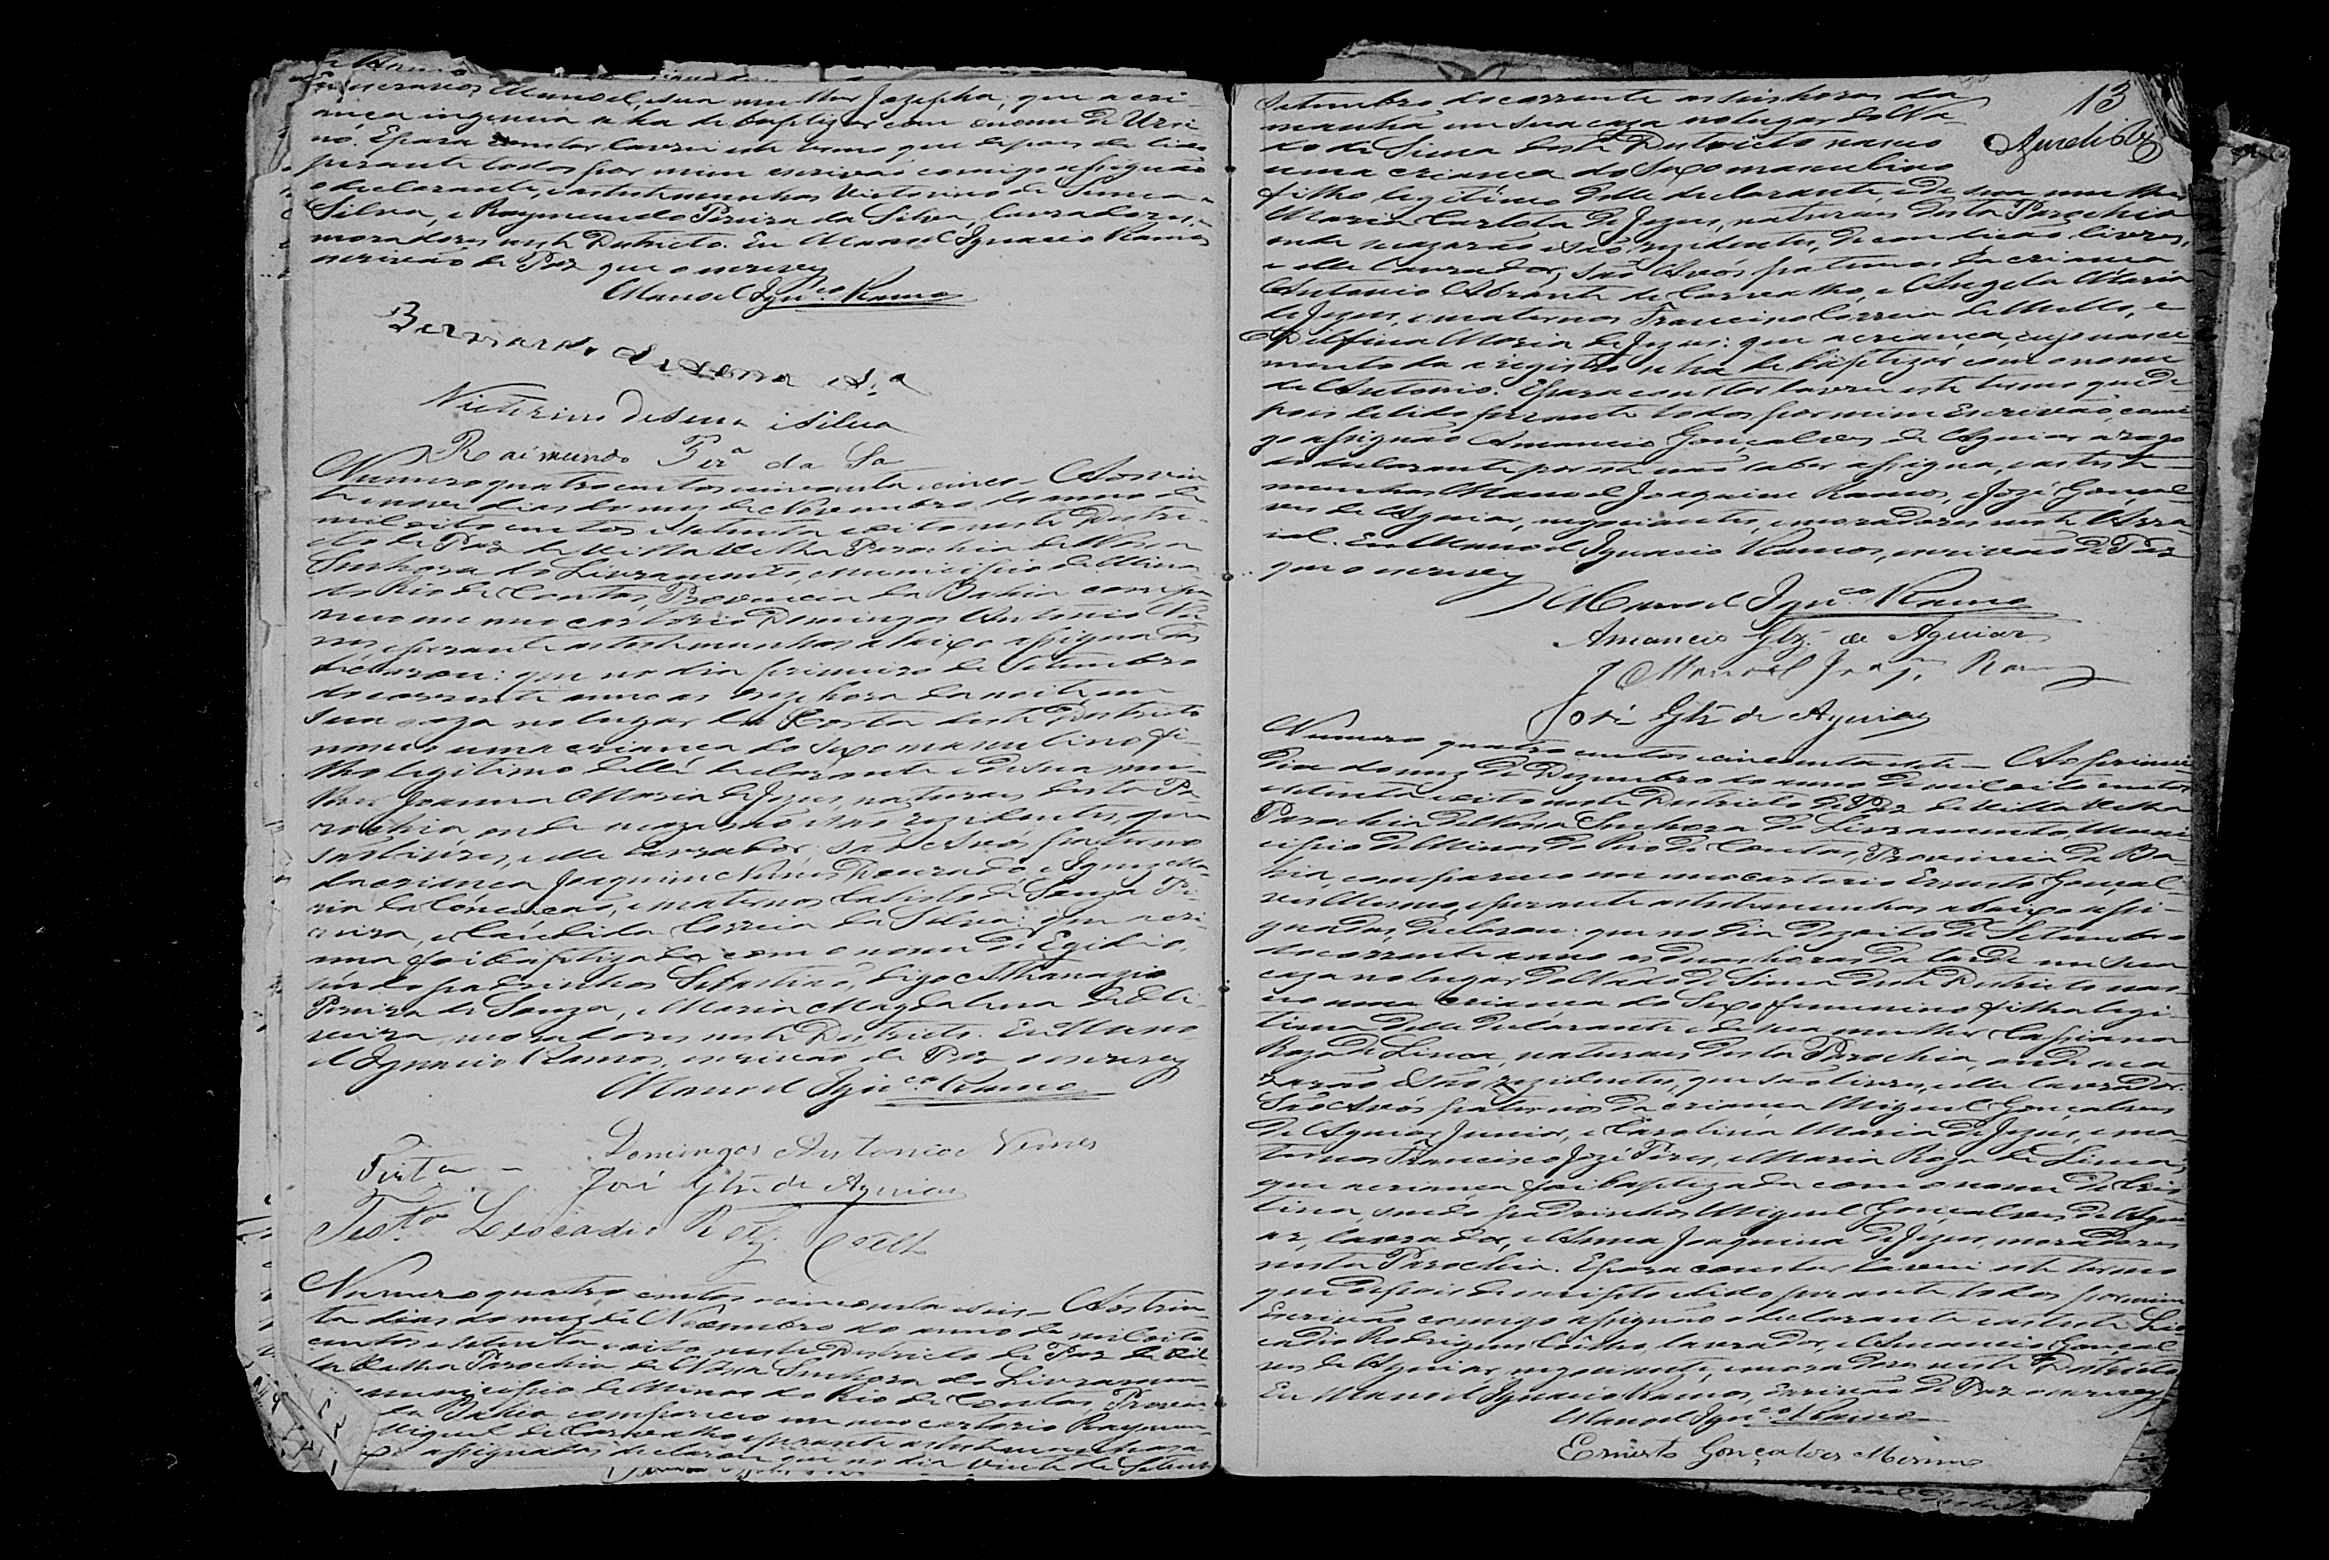 Funerarios Manoel, e sua mulher Jozepha; que a cri-
ança ingenua se ha de baptizar com o nome de Ursi-
no. E para constar lavrei este termo que depois de lido
perante todos por mim escrivão comigo assignão
o declarante, e as testemunhas Victorino de Senna e
Silva, e Raymundo Pereira da Silva, lavradores, e
moradores neste Districto. Eu Manoel Ignacio Ramos
escrivão de Paz que o escrevy
Manoel Ign.co Ramos
Bernardo de Senna e S.a
Victorino de Senna e Silva
Raimundo Per.a da Sa
Numero quatro centos cincoenta e cinco — Aos vin-
te e nove dias do mez de Novembro do anno de
mil oito centos e setenta e oito neste Distri-
cto de Paz de Villa Velha Parochia de Nossa
Senhora do Livramento, Municipio de Minas
do Rio de Contas, Provincia da Bahia compa-
receo em meo cartorio Domingos Antonio Nu-
nes e perante as testemunhas abaixo assignadas
declarou: que no dia primeiro de Setembro
do corrente anno as onze hora da noite em
sua caza no lugar da Costa deste Districto
nasceo uma criança do sexo masculino fi-
lho legitimo delle declarante e de sua mu-
lher Joanna Maria de Jezus, naturaes desta Pa-
rochia onde se cazarão e são rezidentes, que
são livres, e elle lavrador: são Avós paterno
da criança Joaquim Nunes Dourado e Ignez Ma-
ria da Conceição, e maternos Calisto de Souza Pe-
reira, e Candida Correia da Silva: que a cri-
ança foi baptizada com o nome de Egidio,
sendo padrinhos Sebastião, digo Athanazio
Pereira de Souza, e Maria Magdalena de Oli-
veira, moradores neste Districto. Eu Mano-
el Ignacio Ramos, escrivão de Paz o escrevy
Manoel Ign.co Ramos
Domingos Antonio Nunes
José Glz de Aguiar
Test.a Leocadio Roiz Coelho
Numero quatro centos e cincoenta e seis — Aos trin-
ta dias do mez de Novembro do anno de mil oito
centos e setenta e oito neste Districto de Paz de Vil-
la Velha Parochia de Nossa Senhora do Livramen-
municipio de Minas do Rio de Contas, Provin-
da Bahia compareceo em meo cartorio Raymun-
Miguel de Carvalho e perante as testemunhas a-
assignadas declarou que no dia vinte de Setem-
13
Setembro do corrente as seis horas da
manhã em sua caza no lugar do Va-
do de Sima deste Districto nasceo
uma criança do sexo masculino
filho legitimo delle declarante, e de sua mulher
Maria Carlota de Jezus, naturaes desta Parochia
onde se cazarão e são rezidentes, de condição livres,
e elle lavrador; são Avós paternos da criança
Antonio Abrante de Carvalho, e Angela Maria
de Jezus, e maternos Francisco Correia de Mello, e
Delfina Maria de Jezus: que a criança cujo nasci-
mento da e registro se ha de baptizar com o nome
de Antonio. E para constar lavrei este termo que de-
pois de lido perante todos por mim Escrivão, comi-
go assignão Amancio Gonçalves de Aguiar a rogo
do declarante por este não saber assignar, e as teste-
munhas Manoel Joaquim Ramos, e Jozé Gonçal-
ves de Aguiar, negociantes, e moradores neste Arra-
ial. Eu Manoel Ignacio Ramos, escrivão de Paz
que o escrevy
Manoel Ign.co Ramos
Amancio Glz de Aguiar
Manoel Joaq.m Ramos
José Glz de Aguiar
Numero quatro centos e cincoenta e sete — Ao primeiro
dia do mez de Dezembro do anno de mil oito centos
e setenta e oito neste Districto de Paz de Villa Velha
Parochia de Nossa Senhora do Livramento, Muni-
cipio de Minas do Rio de Contas, Provincia da Ba-
hia, compareceo em meo cartorio Ernesto Gonçal-
ves Mesmo, e perante as testemunhas abaixo assi-
gnadas, declarou: que no dia dezoito de Setembro
do corrente anno as duas horas da tarde em sua
caza no lugar do Vado de Sima deste Districto nas-
ceo uma criança do Sexo femenino filha legi-
tima delle declarante e de sua mulher Cassiana
Roza de Lima, naturaes desta Parochia, onde se ca-
zarão e são rezidentes, que são livres, e elle lavrador.
São Avós paternos da criança Miguel Gonçalves
de Aguiar Junior, e Carolina Maria de Jezus, e ma-
ternos Francisco Jozé Pires, e Maria Roza de Lima,
que a criança foi baptizada com o nome de Cris-
tina, sendo padrinhos Miguel Gonçalves de Agui-
ar, lavrador, e Anna Joaquina de Jezus, moradores
nesta Parochia. E para constar lavrei este termo
que depois de escripto e lido perante todos por mim
Escrivão comigo assignão o declarante e as teste Leo-
cadio Rodrigues Coelho, lavrador, e Amancio Gonçal-
ves de Aguiar, negociante, e moradores neste Districto
Eu Manoel Ignacio Ramos, Escrivão de Paz o escrevy
Manoel Ign.co Ramos
Ernesto Gonçalves Mesmo